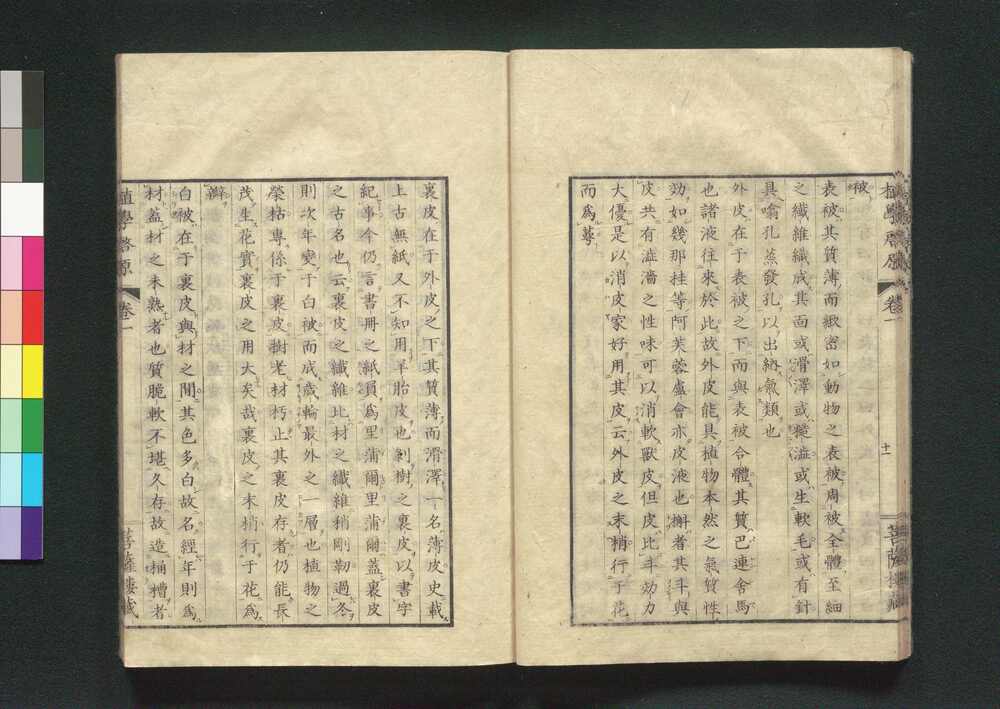 植學啓原 卷一 十一 菩薩樓藏
被
表被其質薄而緻密如動物之表被周被全體至細
之纖維織成其面或滑澤或糙澁或生軟毛或有針
具噏孔蒸發孔以出納氣類也
外皮在于表被之下而與表被合體其質巴連舍馬
也諸液往來於此故外皮能具植物本然之氣質性
効如幾那桂等阿芙蓉盧會亦皮液也槲者其斗與
皮共有澁濇之性味可以消軟獸皮但皮比斗効力
大優是以消皮家好用其皮云外皮之末梢行于花
而爲萼
裏皮在于外皮之下其質薄而滑澤一名薄皮史載
上古無紙又不知用羊胎皮也剝樹之裏皮以書字
紀事今仍言書冊之紙頁爲里蒲爾里蒲爾蓋裏皮
之古名也云裏皮之纖維比材之纖維稍剛靭過冬
則次年變于白被而成歲輪最外之一層也植物之
榮枯專係于裏皮樹老材朽止其裏皮存者仍能長
茂生花實裏皮之用大矣哉裏皮之末梢行于花爲
瓣
白被在于裏皮與材之間其色多白故名經年則爲
材蓋材之未熟者也質脆軟不堪久存故造桶槽者
植學啓原 卷一 菩薩樓藏